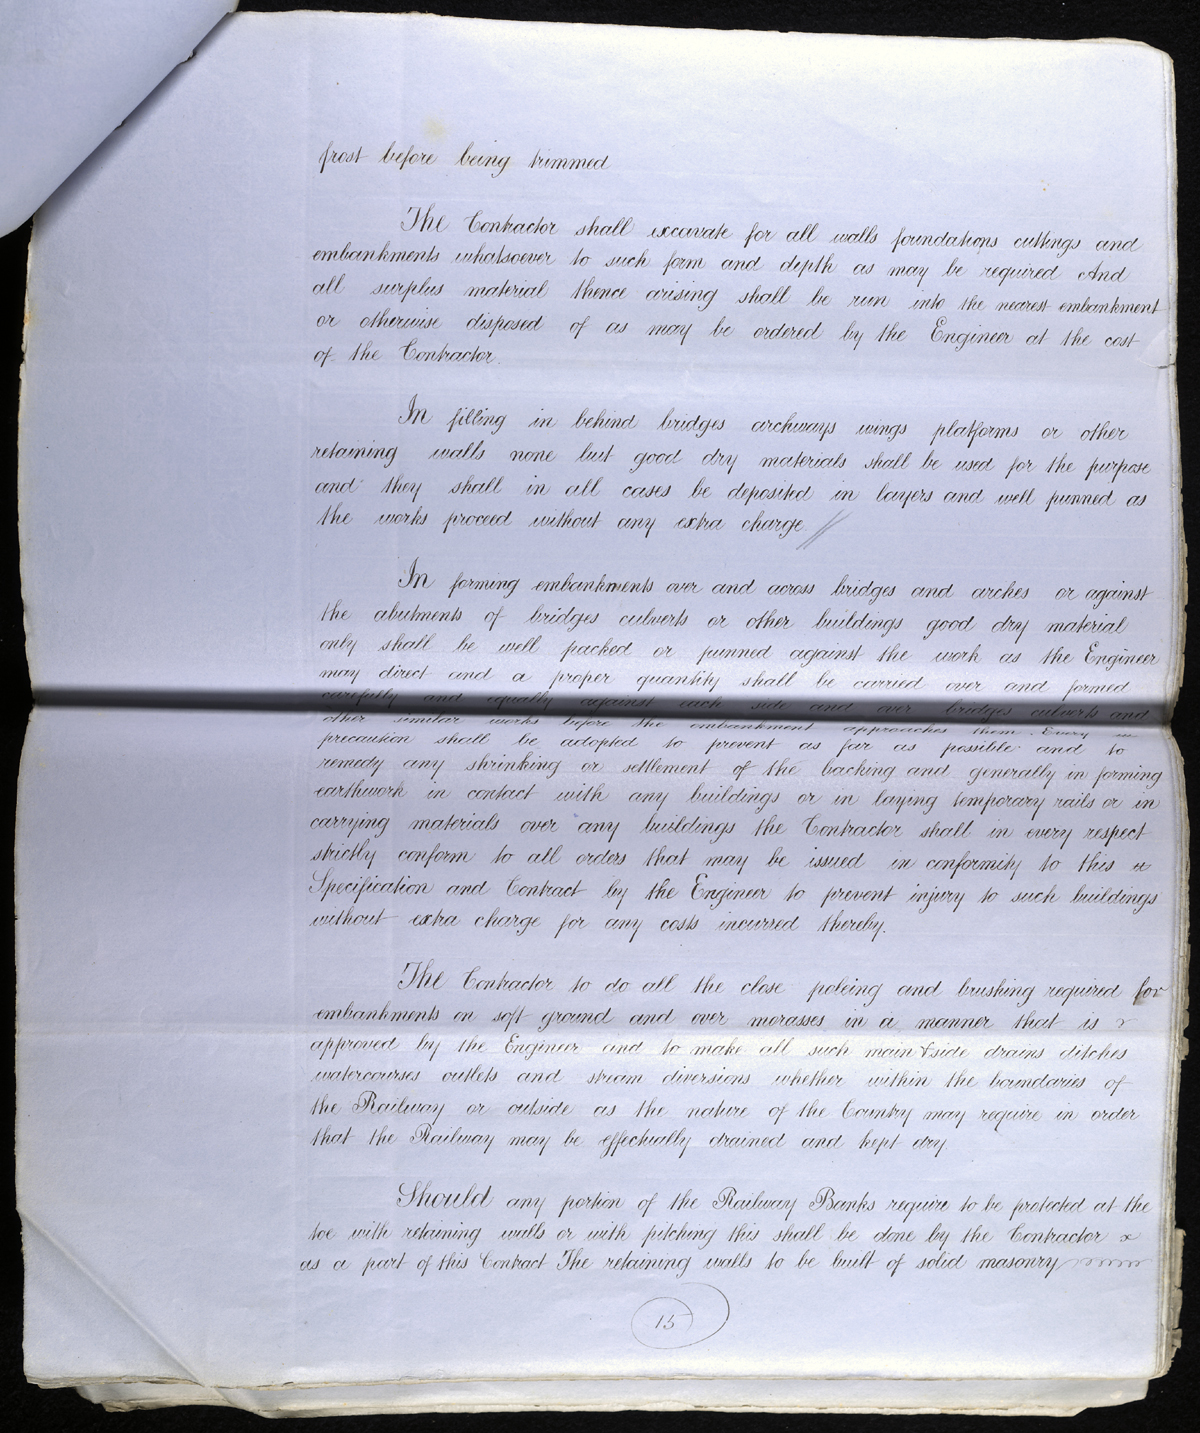 frost before being trimmed
The Contractor shall excavate for all walls foundations cuttings and
embankments whatsoever to such form and depth as may be required And
all surplus material thence arising shall be run into the nearest embankment
or otherwise disposed of as may be ordered by the Engineer at the cost
of the Contractor.
In filling in behind bridges archways wings platforms or other
retaining walls none but good dry materials shall be used for the purpose
and they shall in all cases be deposited in layers and well punned as
the works proceed without any extra charge //
In forming embankments over and across bridges and arches or against
the abutments of bridges culverts or other buildings good dry material
only shall be well packed or punned against the work as the Engineer
may direct and a proper quantity shall be carried over and formed
carefully and equally against each side and over bridges culverts and
other similar works before the embankment approaches them. Every
precaution shall be adopted to prevent as far as possible and to
remedy any shrinking or settlement of the backing and generally in forming
earthwork in contact with any buildings or in laying temporary rails or in
carrying materials over any buildings the Contractor shall in every respect
strictly conform to all orders that may be issued in conformity to this
Specification and Contract by the Engineer to prevent injury to such buildings
without extra charge for any costs incurred thereby.
The Contractor to do all the close poleing and brushing required for
embankments on soft ground and over morasses in a manner that is
approved by the Engineer and to make all such main & side drains ditches
watercourses outlets and stream diversions whether within the boundaries of
the Railway or outside as the nature of the Country may require in order
that the Railway may be effectually drained and kept dry.
Should any portion of the Railway Banks require to be protected at the
toe with retaining walls or with pitching this shall be done by the Contractor
as a part of this Contract The retaining walls to be built of solid masonry
15